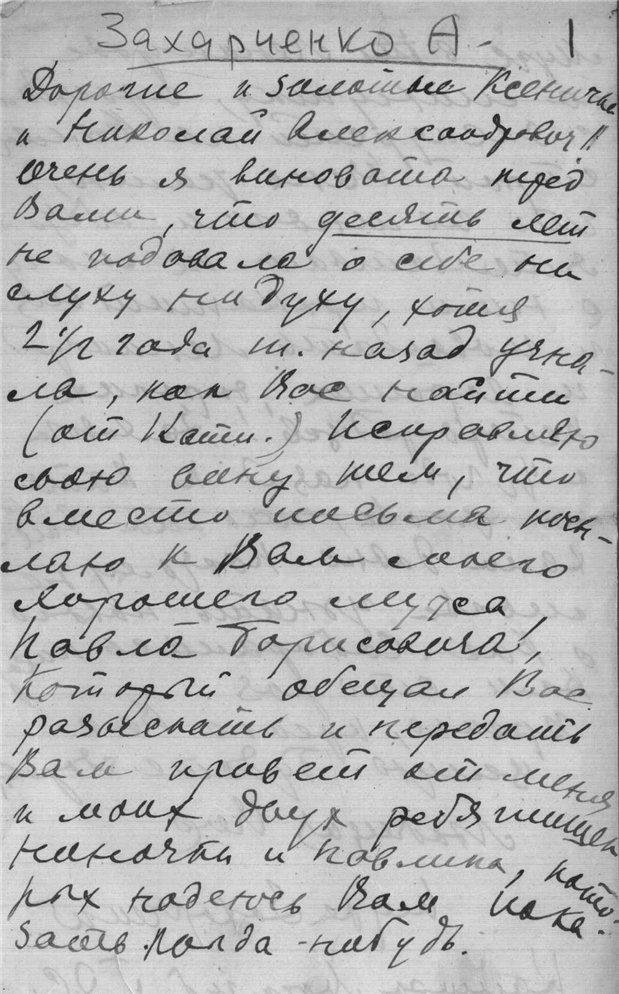 Захарченко А- 1
Дорогие и золотые Ксеничка
и Николай Александрович!!
очень я виновата перед
Вами, что десять лет
не подавала о себе ни
слуху ни духу, хотя
2 1/2 года т. назад узна-
ла, как Вас найти
(от Кати.) Исправляю
свою вину тем, что
вместо письма посы-
лаю к Вам моего
хорошего мужа,
Павла Борисовича,
который обещал Вас
разыскать и передать
Вам привет от меня
и моих двух ребятишек
Ниночки и Павлика, кото-
рых надеюсь Вам пока-
зать когда-нибудь.